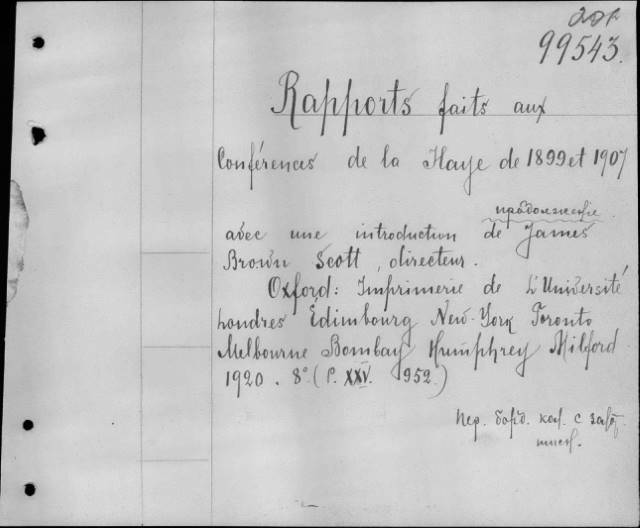 99543.
Rapports faits aux
Conférences de la Haye de 1899 et 1907
продолжение
avec une introduction de James
Brown Scott, directeur.
Oxford: Imprimerie de L'Université
Londres Edimbourg New-York Toronto
Melbourne Bombay Humphrey Milford
1920. 8° (P. XXV. 952.)
Пер. с